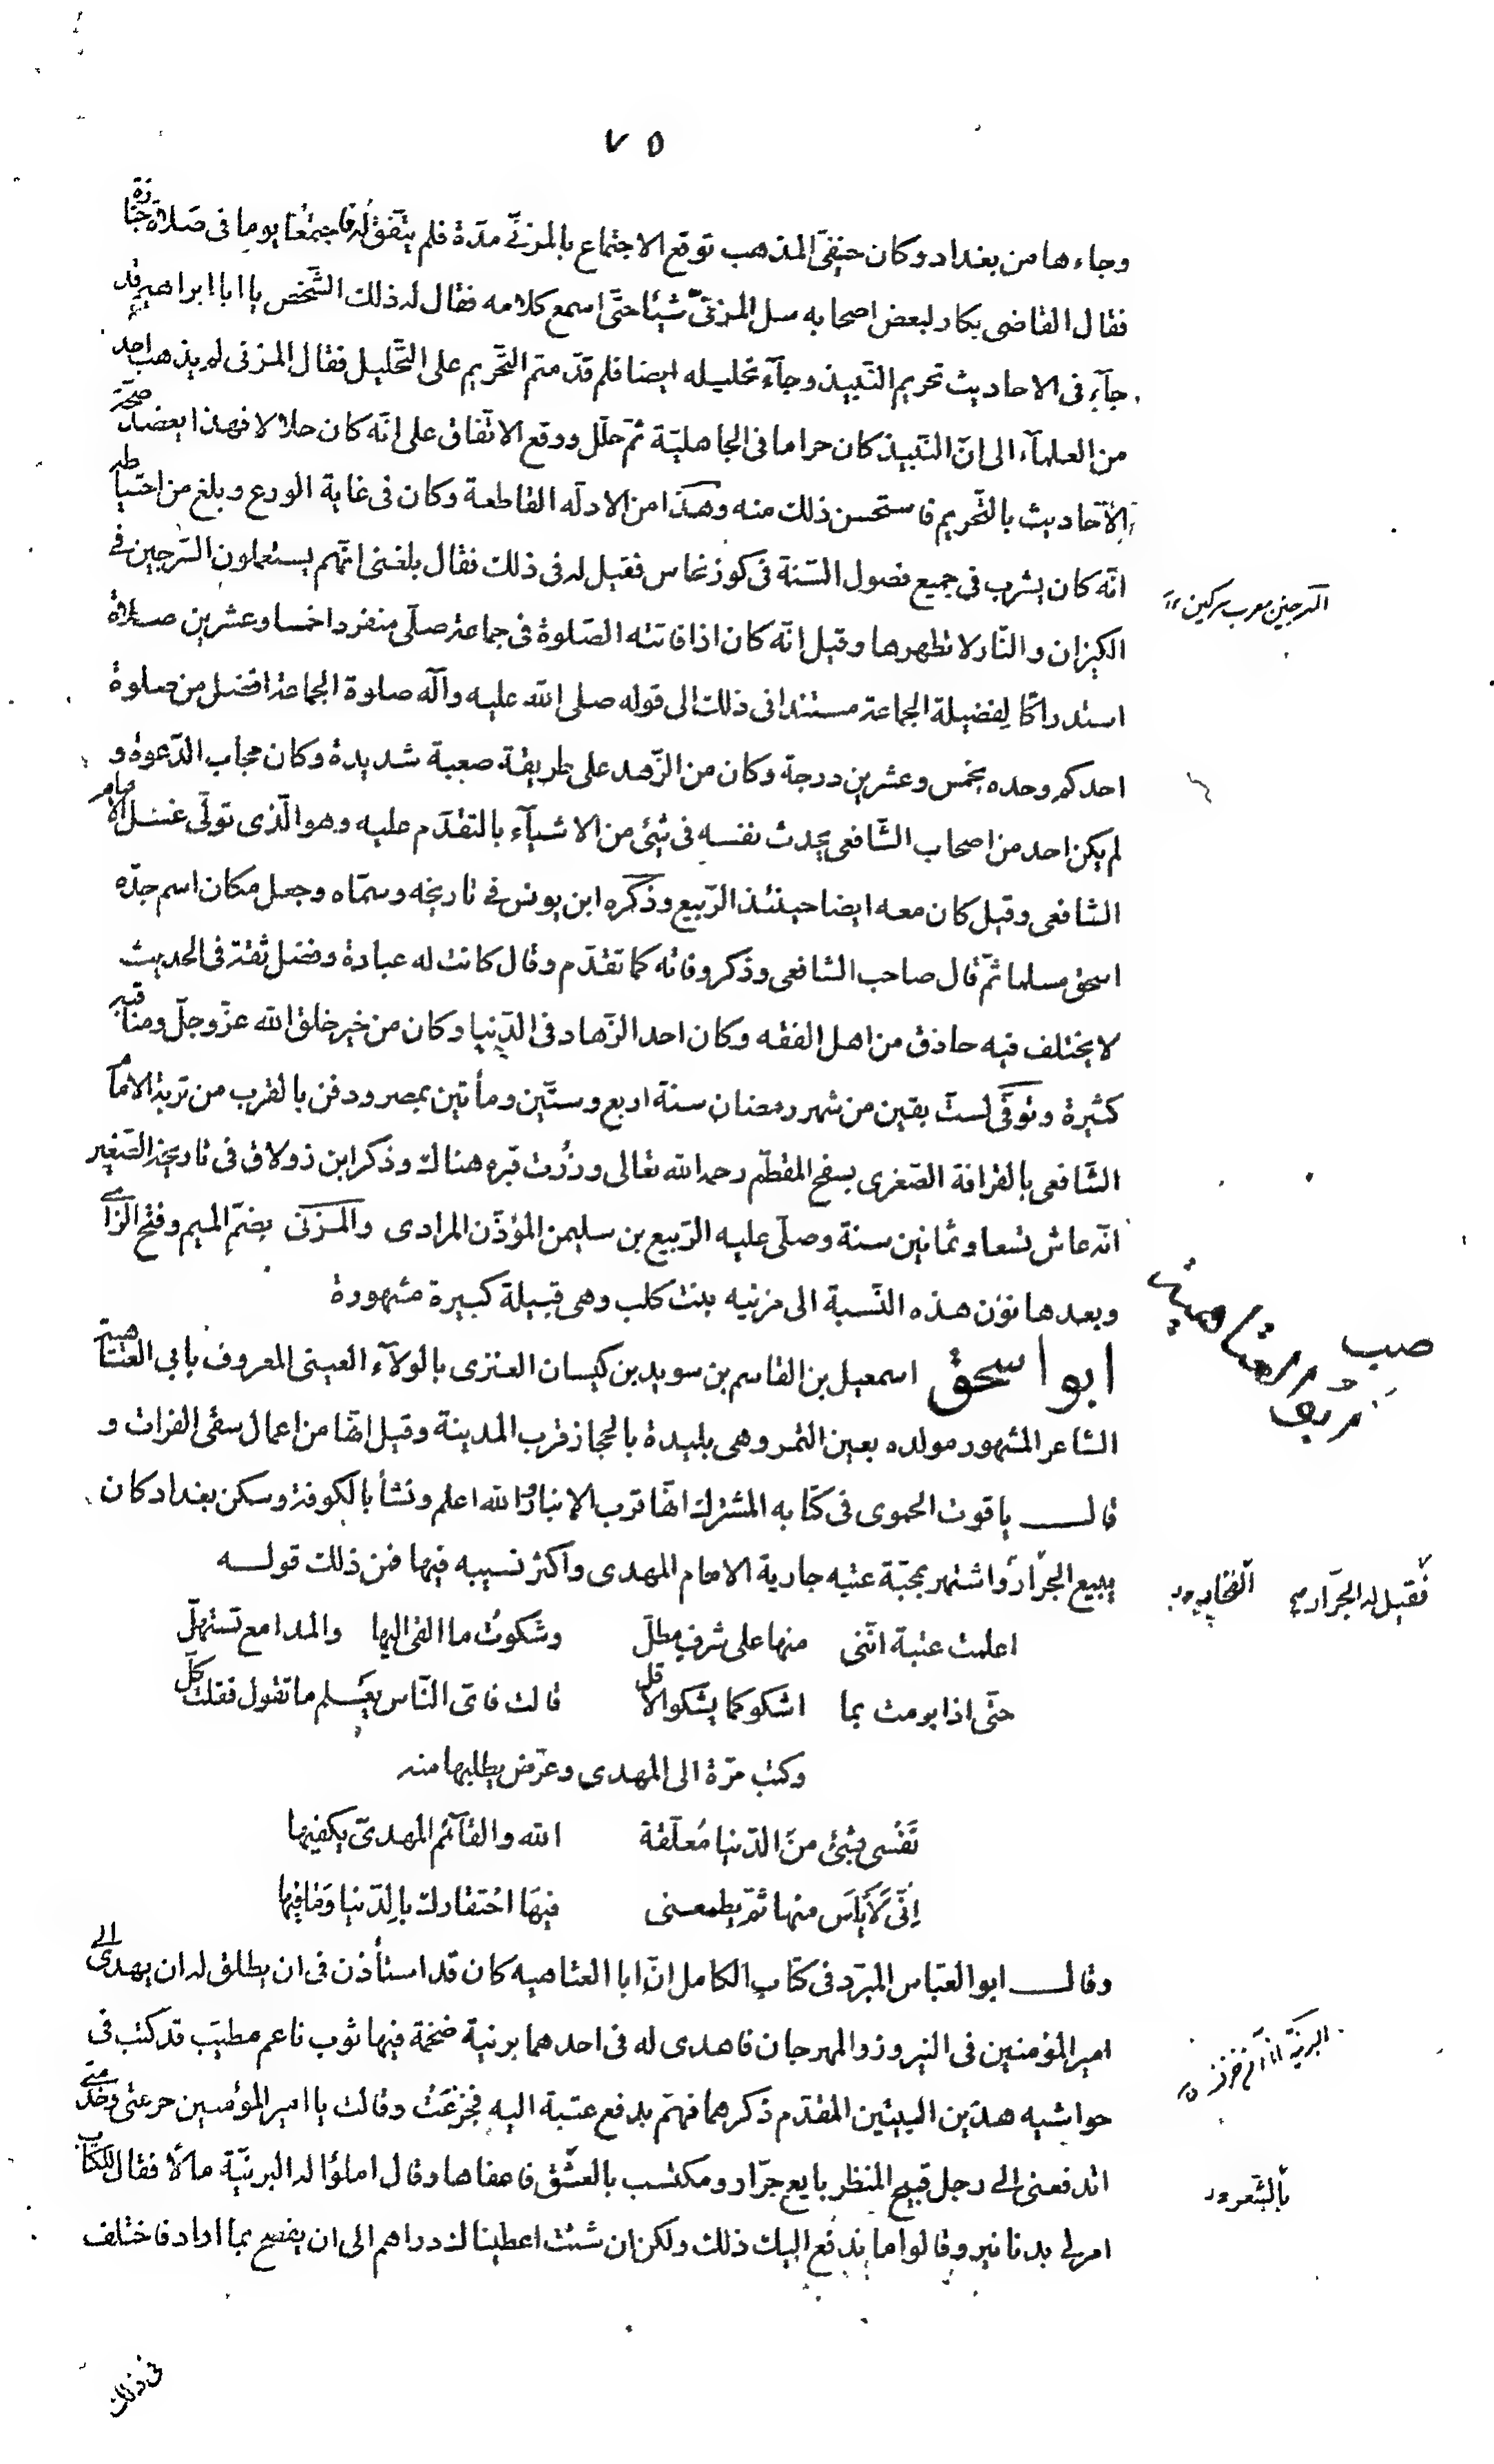 ٧٥
وجاءها من بغداد وكان حنفىّ المذهب توقع الاجتماع بالمزنّى مدّة فلم يتّفق له فاجتمعا يوما فى صلاة جنازة
فقال القاضى بكار لبعض اصحابه سل المزنىّ شيئا حتّى اسمع كلامه فقال له ذلك الشّخص يا ابا ابراهيم قد
جآء فى الاحاديث تحريم النّبيذ وجآء تحليله ايضا فلم قدّمتم التّحريم على التّحليل فقال المزنى لم يذهب احد
من العلمآء الى انّ النّبيذ كان حراما فى الجاهليّة ثمّ حلّل ووقع الاتّفاق على انّه كان حلالا فهذا يعضد صحّة
الاحاديث بالتّحريم فاستحسن ذلك منه وهذا من الادلّه القاطعة وكان فى غاية الورع وبلغ من احتياطه
انّه كان يشرب فى جميع فصول السّنة فى كوز نحاس فقيل له فى ذلك فقال بلغنى انّهم يستعملون السّرجين فى
الكيزان والنّار لا تطهرها وقيل انّه كان اذا فاتته الصّلوة فى جماعة صلّى منفردا خمسا وعشرين صلاة
استدراكا لفضيلة الجماعة مستندا فى ذلك الى قوله صلى الله عليه وآله صلوة الجماعة افضل من صلوة
احدكم وحده بخمس وعشرين درجة وكان من الزّهد على طريقة صعبة شديدة وكان مجاب الدّعوة و
لم يكن احد من اصحاب الشّافعى يحدث نفسه فى شئ من الاشيآء بالتقدّم عليه وهو الّذى تولّى غسل الامام
الشافعى وقيل كان معه ايضا حينئذ الرّبيع وذكره ابن يونس فى تاريخه وسمّاه وجعل مكان اسم جدّه
اسحق مسلما ثمّ قال صاحب الشافعى وذكر وفاته كما تقدّم وقال كانت له عبادة وفضل ثقة فى الحديث
لا يختلف فيه حاذق من اهل الفقه وكان احد الزّهاد فى الدّنيا وكان من خير خلق الله عزّ وجلّ ومناقبه
كثيرة وتوفّى لستّ بقين من شهر رمضان سنة اربع وستّين ومأتين بمصر ودفن بالقرب من تربة الامام
الشّافعى بالقرافة الصّغرى بسفح المقطّم رحمه الله تعالى وزُرت قبره هناك وذكر ابن زولاق فى تاريخه الصّغير
انّه عاش تسعا وثمانين سنة وصلّى عليه الرّبيع بن سليمن المؤذّن المرادى والمزنى بضمّ الميم وفتح الزّاى
وبعدها نون هذه النّسبة الى مزنيه بنت كلب وهى قبيلة كبيرة مشهورة
ابو اسحق اسمعيل بن القاسم بن سويد بن كيسان العنزى بالولآء العينى المعروف بابى العتاهية
الشاعر المشهور مولده بعين التمر وهى بليدة بالحجاز قرب المدينة وقيل انّها من اعمال سقى الفرات و
قال ياقوت الحموى فى كتابه المشترك انّها قرب الانبار والله اعلم ونشأ بالكوفة وسكن بغداد كان
يبيع الجرّار واشتهر بمحبّة عتبه جارية الامام المهدى واكثر نسيبه فيها فمن ذلك قوله
اعلمت عتبة انّنى منها على شرف مطلّ وشكوت ما القى اليها والمدامع تستهلّ
حتّى اذا برمت بما اشكو كما يشكو الاقل قالت فاىّ النّاس يعلم ما تقول فقلت كلّ
وكتب مرّة الى المهدى وعرّض بطلبها منه
نَفْسى بشئ منَ الدّنيا مُعلّقة الله والقآئم المهدىّ يكفيها
اِنّى لَأيأسَ منها ثمّ يطمعنى فيهَا احتقارك بالدّنيا وَمَا فيها
وقال ابو العبّاس المبرّد فى كتاب الكامل انّ ابا العتاهيه كان قد استأذن فى ان يطلق له ان يهدى الى
امير المؤمنين فى النيروز والمهرجان فاهدى له فى احدهما برنية ضخمة فيها ثوب ناعم مطيّب قد كتب فى
حواشيه هذين البيتين المقدّم ذكرهما فهمّ بدفع عتبة اليه فجزعَتْ وقالت يا امير المؤمنين حرمتى وخدمتى
اتدفعنى الى رجل قبيح المنظر بايع جرّار ومكتسب بالعشق فاعفاها وقال املؤا له البرنيّة مالًا فقال للكتّاب
امر لى بدنانير وقالوا ما ندفع اليك ذلك ولكن ان شئت اعطيناك دراهم الى ان يفصح بما اراد فاختلف
فى ذلك
السرجين معرب سركين
ابو العتاهية
فقيل له الجرّار
بالشّعر